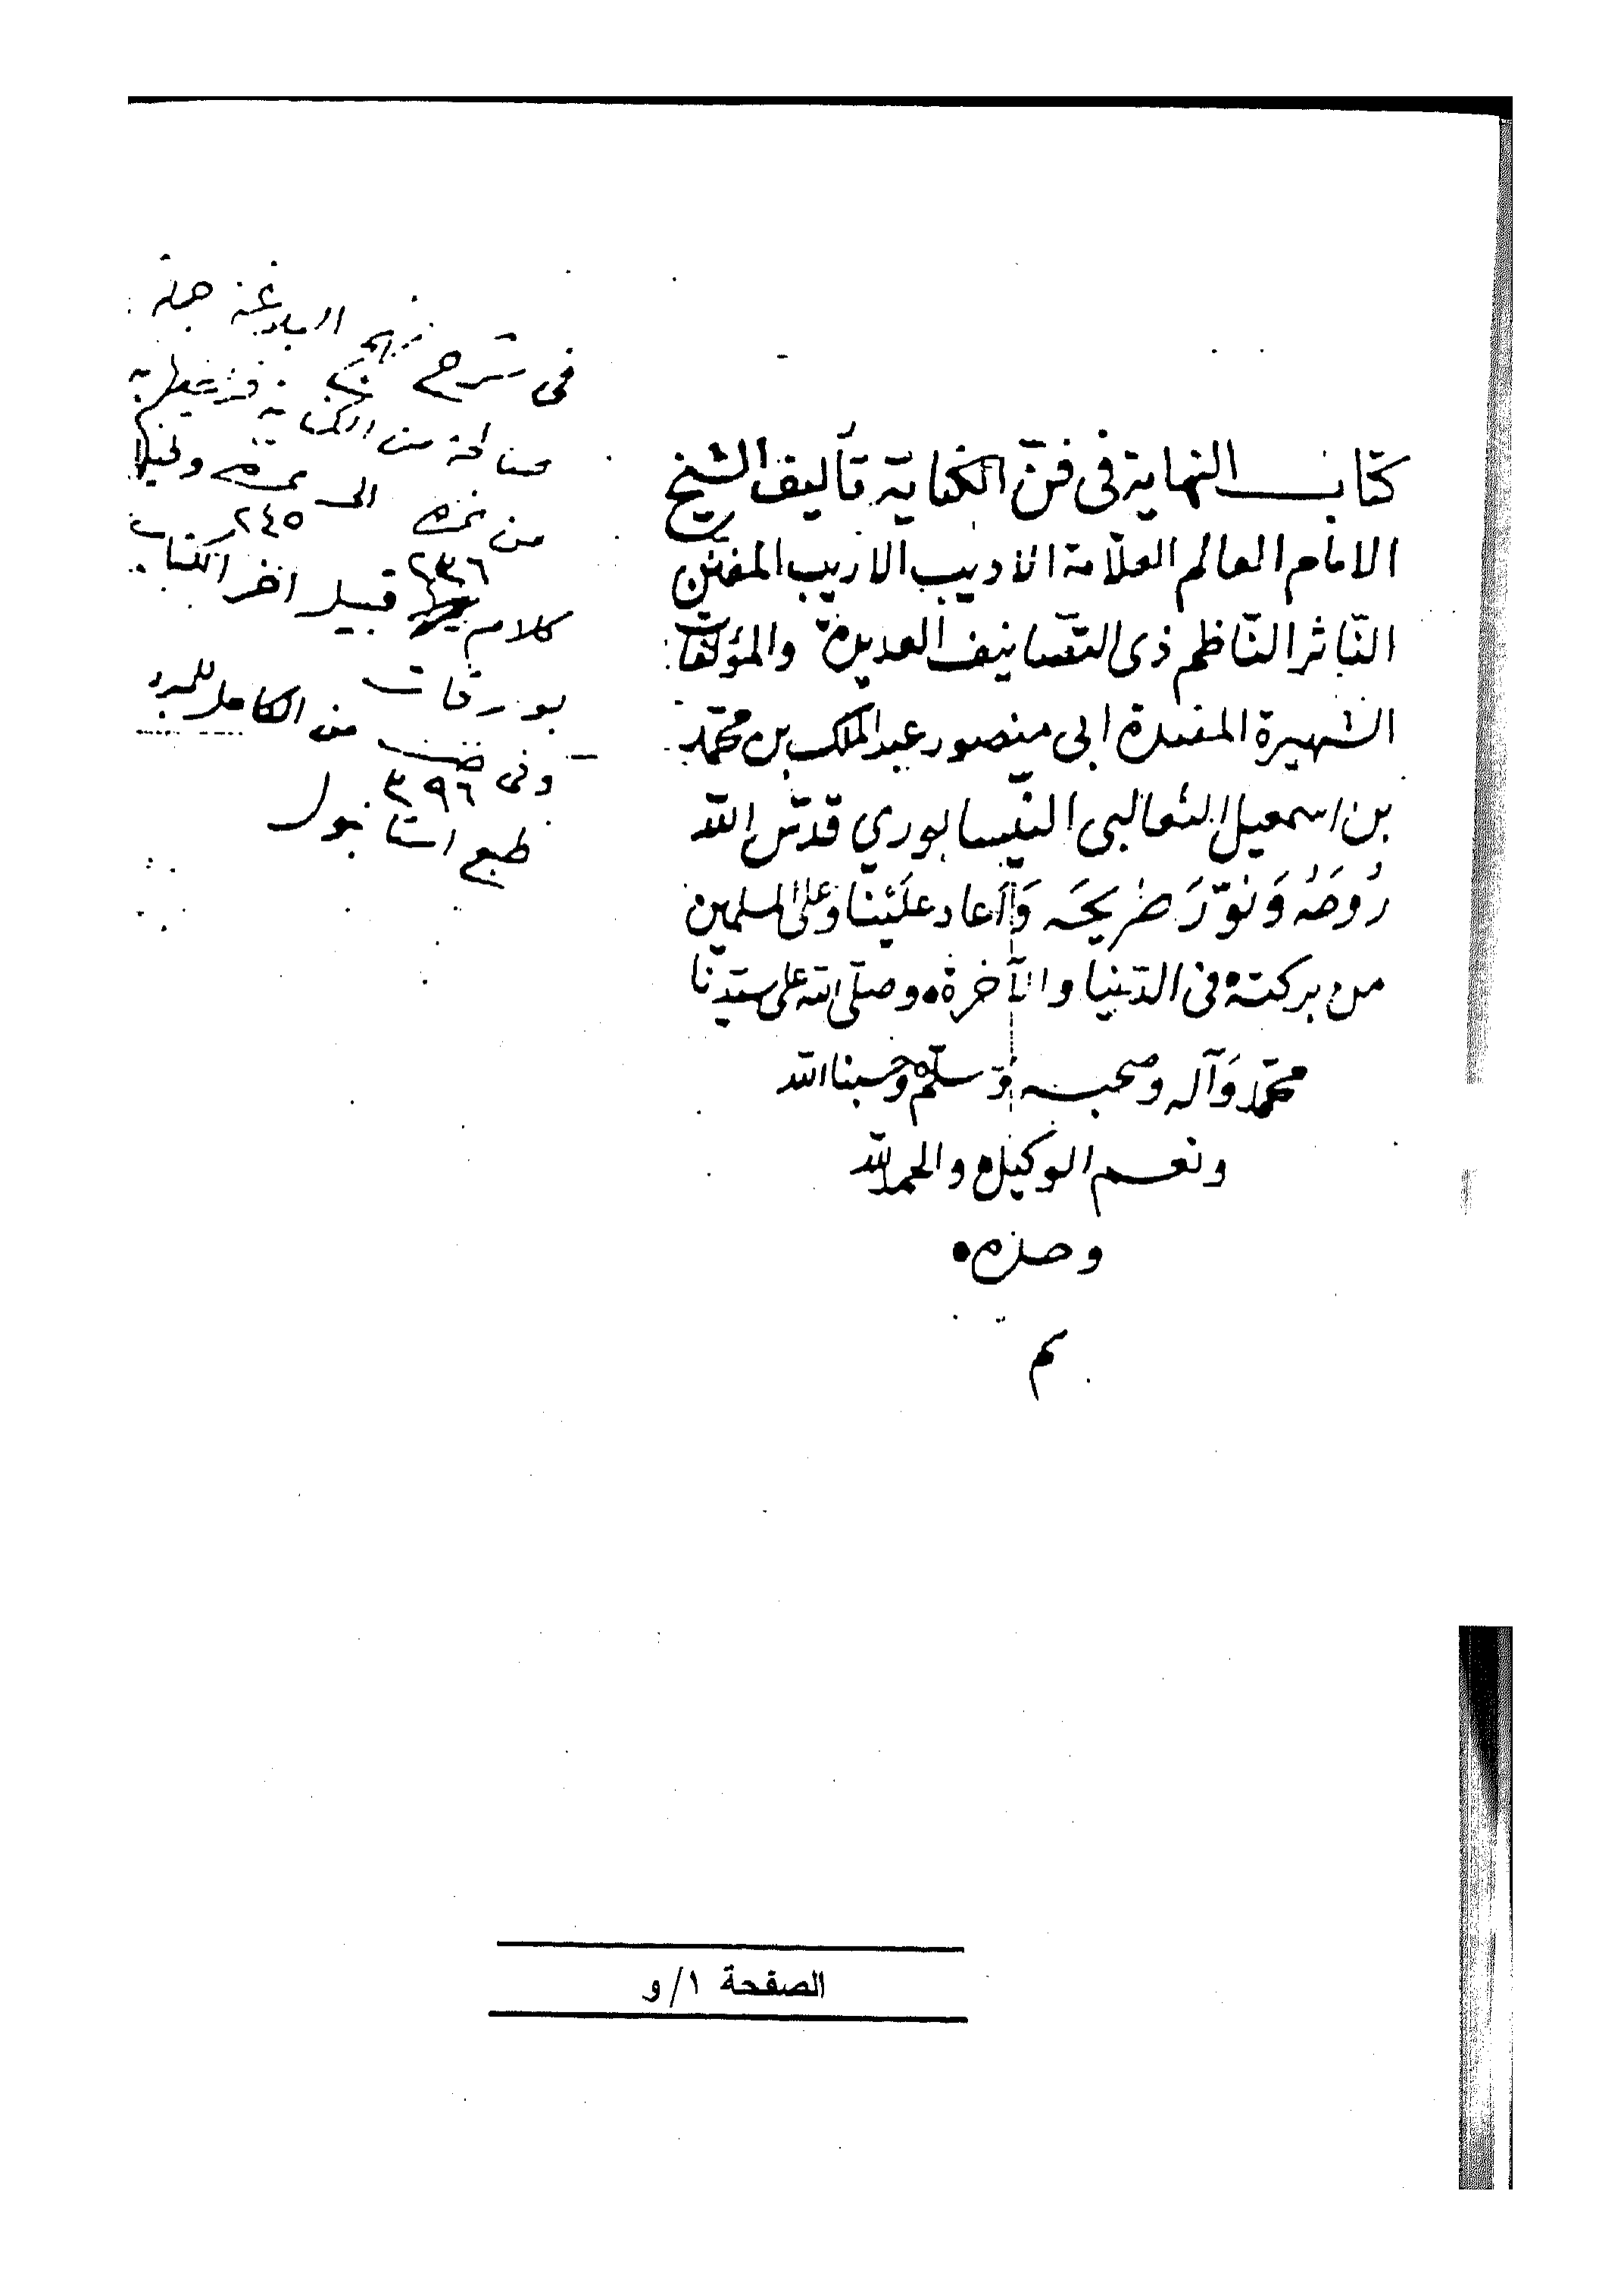 كتاب النهاية فى فنّ الكناية تأليف الشيخ
الامام العالم العلّامة الاديب الاريب المفنن
النّاثر الناظم ذى التصانيف العديدة والمؤلفات
الشهيرة المفيدة ابى منصور عبد الملك بن محمّد
بن اسمعيل الثعالبى النيّسابوري قدّس اللّه
رُوحَهُ وَنوّرَ ضريحَه وَأعاد علَيْنا وعلى المسلمين
من بركته فى الدّنيا والآخرة وصلّى اللّه على سيّدنا
محمّد وَآله وصحبه وَسلّم وحسبنا اللّه
ونعم الوكيل والحمد للّه
وحده
م
فى شرح نهج البلاغة جملة
صالحة من الكناية
من نمرة الى نمرة
٢٣٦ ٢٤٥
كلام قبيل اخر الكتاب
بورقات
وفى من الكامل للمبرد
٣٩٦
طبع استانبول
الصفحة ١/و